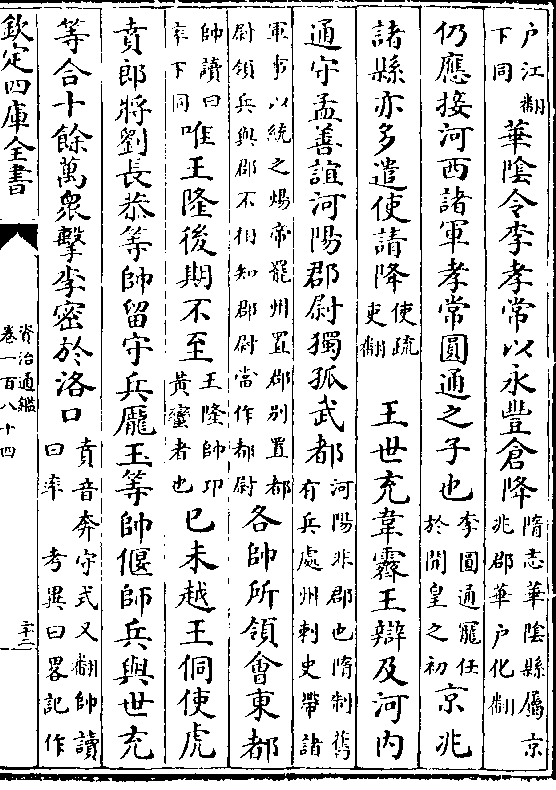 户江翻下同華陰令李孝常以永豐倉降隋志華陰縣屬京兆郡華户化翻
仍應接河西諸軍孝常圓通之子也李圓通寵任於開皇之初京兆
諸縣亦多遣使請降使疏吏翻王世充韋霽王辯及河内
通守孟善誼河陽郡尉獨孤武都河陽非郡也隋制舊有兵處州刺史帶諸
軍事以統之煬帝罷州置郡别置都尉領兵與郡不相知郡尉當作都尉各帥所領會東都
帥讀曰率下同唯王隆後期不至王隆帥卭黄蠻者也已未越王侗使虎
賁郎將劉長恭等帥留守兵龎玉等帥偃師兵與世充
等合十餘萬衆擊李密於洛口賁音奔守式又翻帥讀曰率 考異曰畧記作
欽定四庫全書
資治通鑑
卷一百八十四